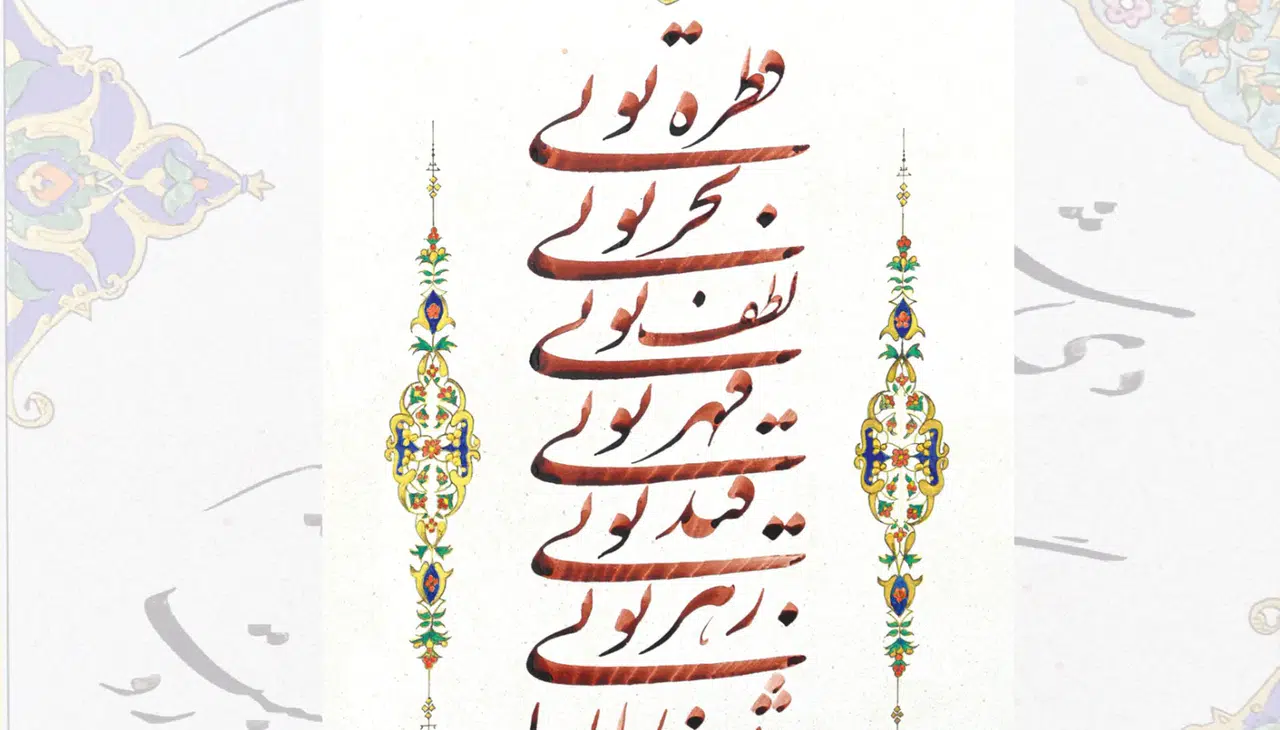 قطره تویی
بحر تویی
لطف تویی
قهر تویی
قند تویی
زهر تویی